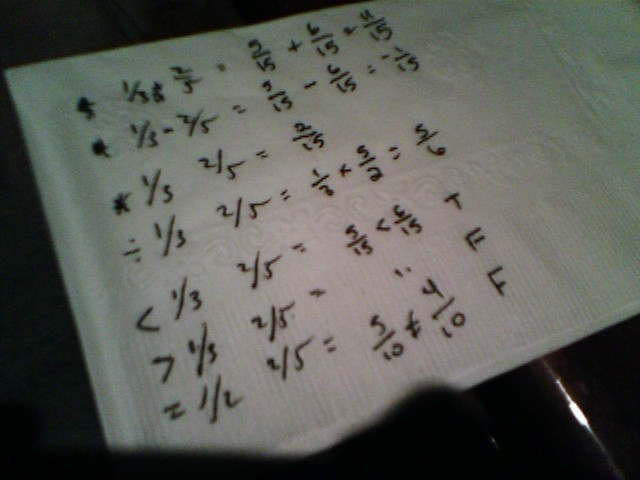 1/3 2/5 = 5/15 + 6/15 = 11/15
1/3 - 2/5 = 5/15 - 6/15 = -1/15
* 1/3 2/5 = 2/15
÷ 1/3 2/5 = 1/3 × 5/2 = 5/6
< 1/3 2/5 = 5/15 < 6/15 T
> 1/3 2/5 = " F
= 1/2 2/5 = 5/10 ≠ 4/10 F